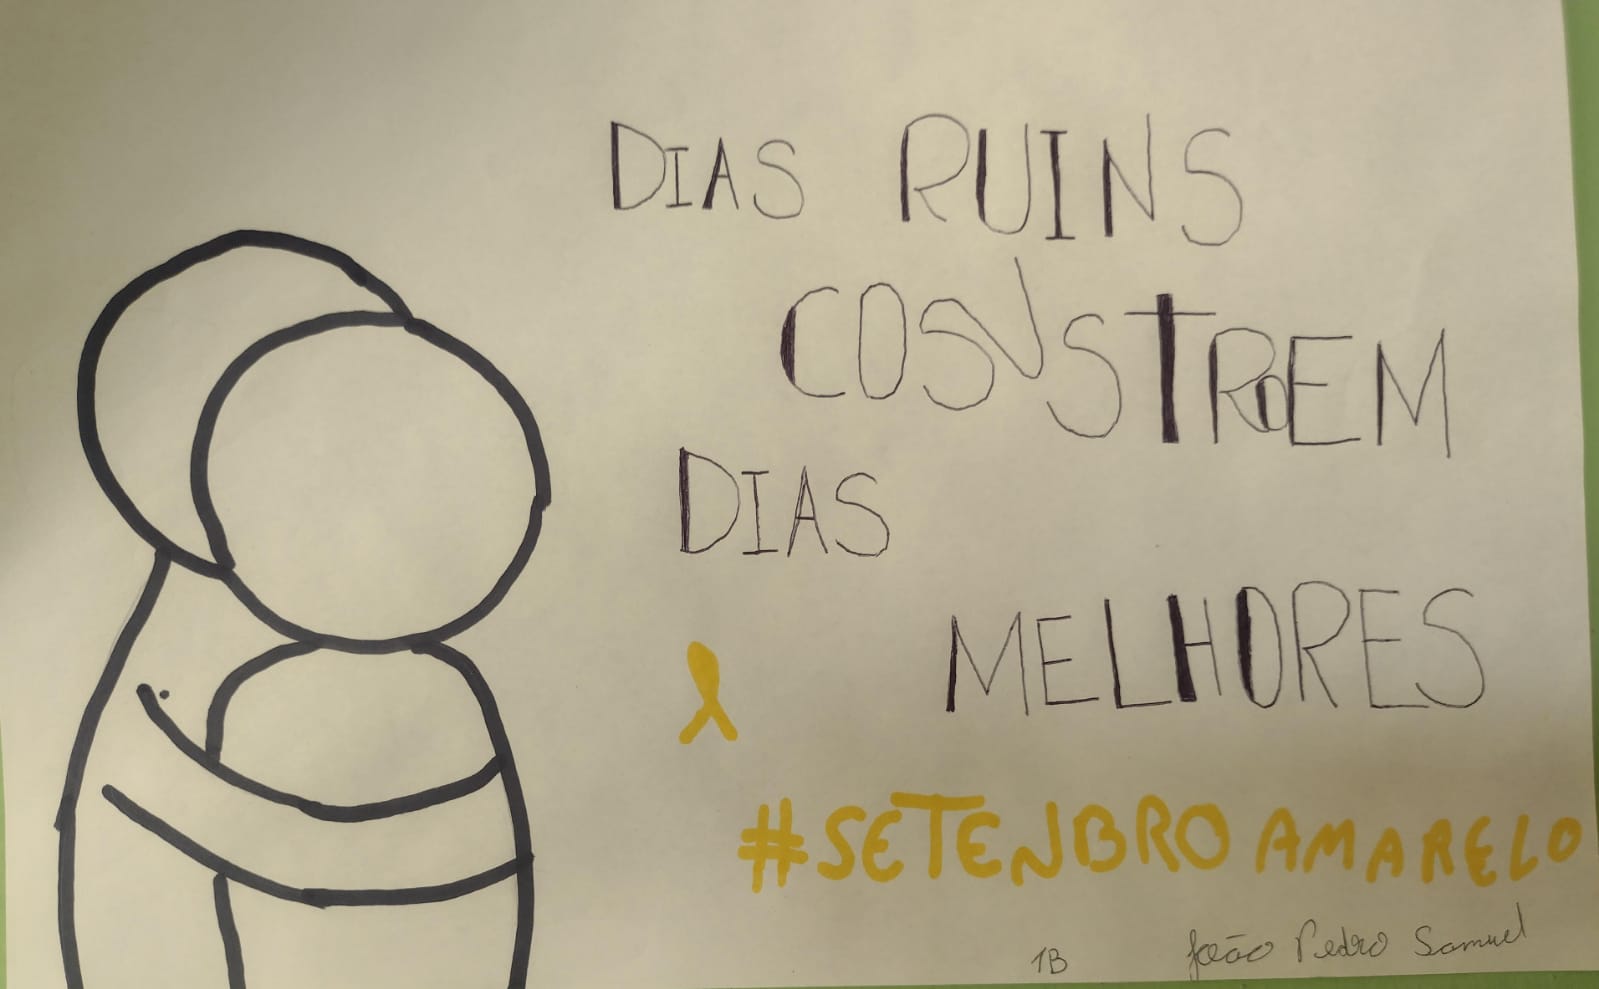 DIAS RUINS
COSNSTROEM
DIAS
MELHORES
#SETENBRO AMARELO
1B João Pedro Samuel